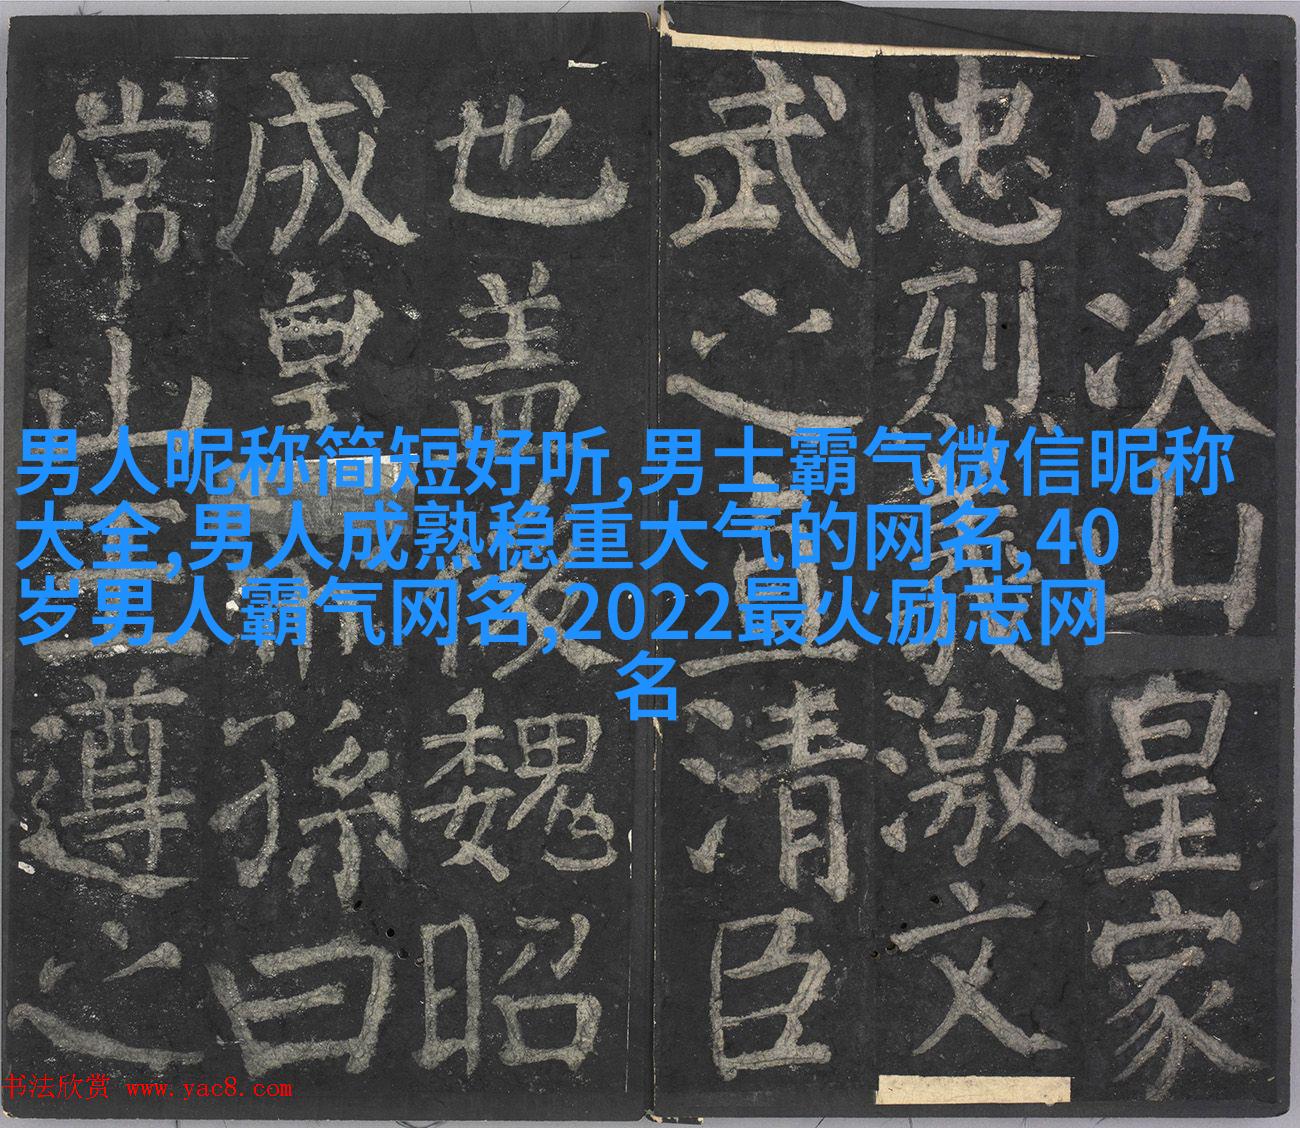 字次山皇家
忠烈義激文
武之直清臣
也盖後魏昭
成皇帝孫曰
常山王遵之
男人昵称简短好听,男士霸气微信昵称
大全,男人成熟稳重大气的网名,40
岁男人霸气网名,2022最火励志网
名
书法欣赏 www.yac8.com